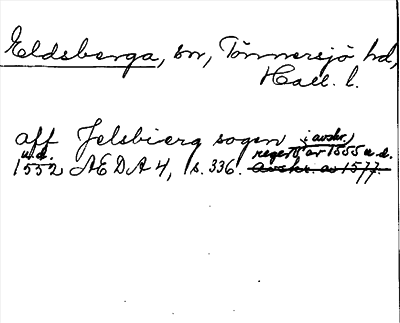 Eldsberga, sn, Tönnersjö hd,
Hall. l.
aff Jelsbierg sogen i avskr.
u.d. regest av 1555 u.d.
1552 ÆDA 4, s. 336. avskr. av 1577.